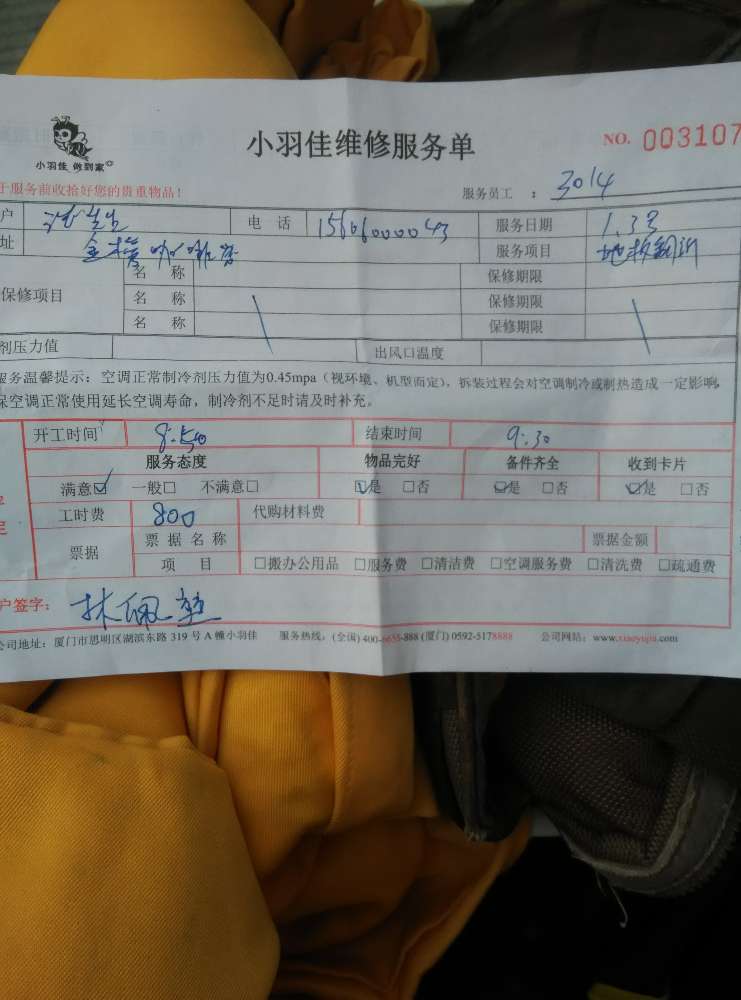 小羽佳 做到家
小羽佳维修服务单
NO. 003107
于服务前收拾好您的贵重物品！
服务员工 ： 3014
户 先生 电 话 15606000043 服务日期 1.3号
址 服务项目 地板翻新
保修项目 名 称 保修期限
名 称 保修期限
名 称 保修期限
剂压力值 出风口温度
服务温馨提示：空调正常制冷剂压力值为0.45mpa（视环境、机型而定），拆装过程会对空调制冷或制热造成一定影响
保空调正常使用延长空调寿命，制冷剂不足时请及时补充。
开工时间 8:50 结束时间 9:30
服务态度 物品完好 备件齐全 收到卡片
满意☑ 一般□ 不满意□ ☑是 □否 ☑是 □否 ☑是 □否
工时费 800 代购材料费
票据 票 据 名 称 票据金额
项 目 □搬办公用品 □服务费 □清洁费 □空调服务费 □清洗费 □疏通费
户签字： 林佩
公司地址：厦门市思明区湖滨东路 319 号 A 幢小羽佳 服务热线：(全国) 400-6655-888 (厦门) 0592-5178888 公司网站：www.xiaoyujia.com